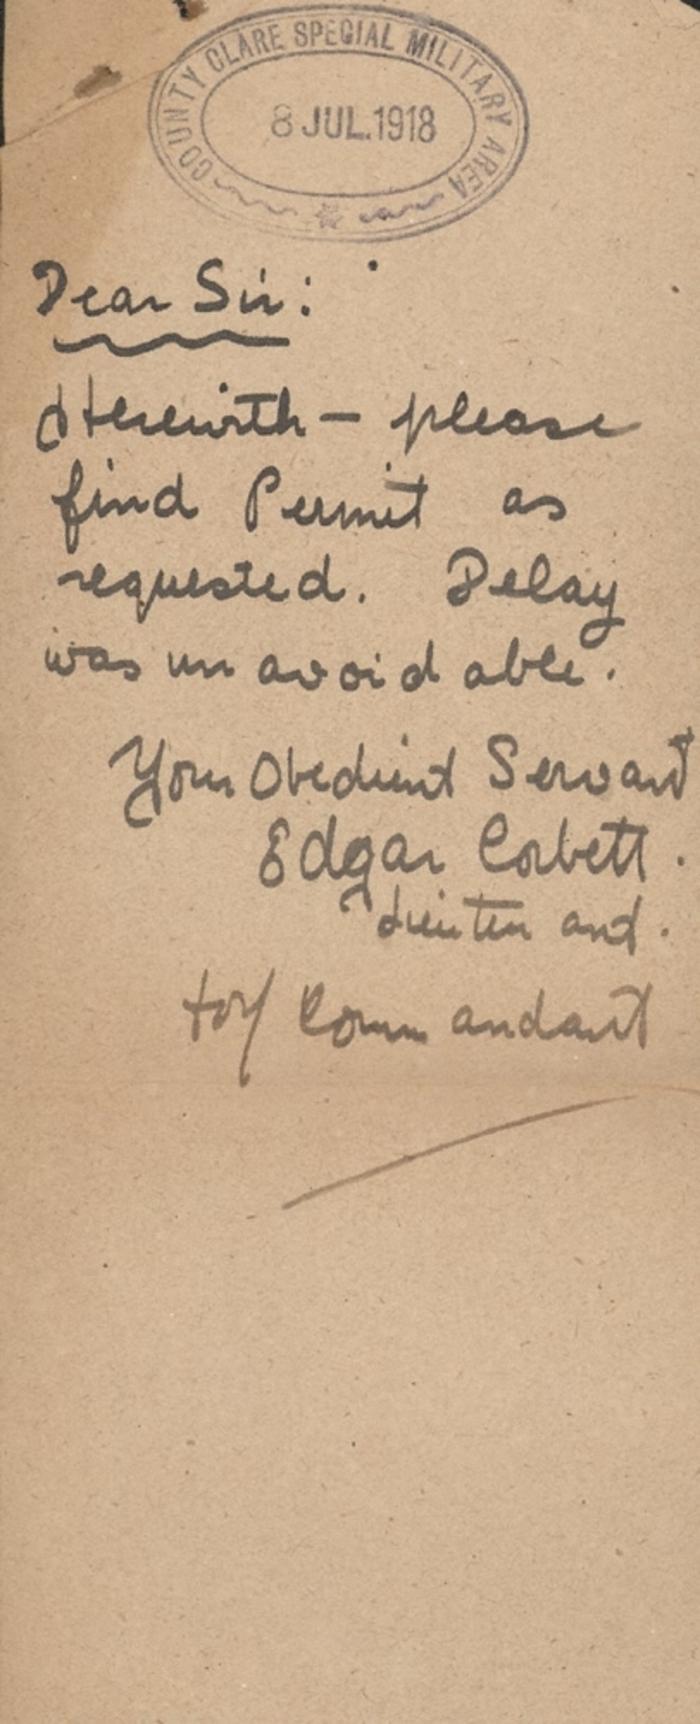 COUNTY CLARE SPECIAL MILITARY AREA
8 JUL.1918
Dear Sir:
Herewith - please
find Permit as
requested. Delay
was unavoidable.
Your Obedient Servant
Edgar Corbett.
Lieutenant.
for Commandant